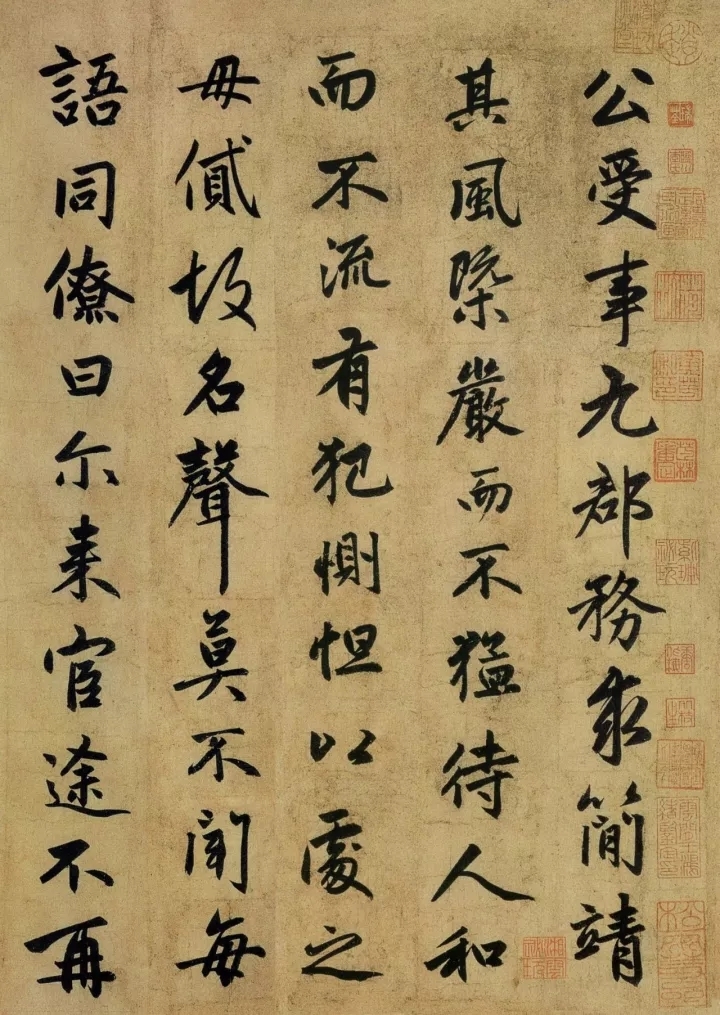 公受事九郡務求簡靖
其風槩嚴而不猛待人和
而不流有犯惻怛以處之
毋貸故名聲莫不聞每
語同僚曰尓来宦途不再